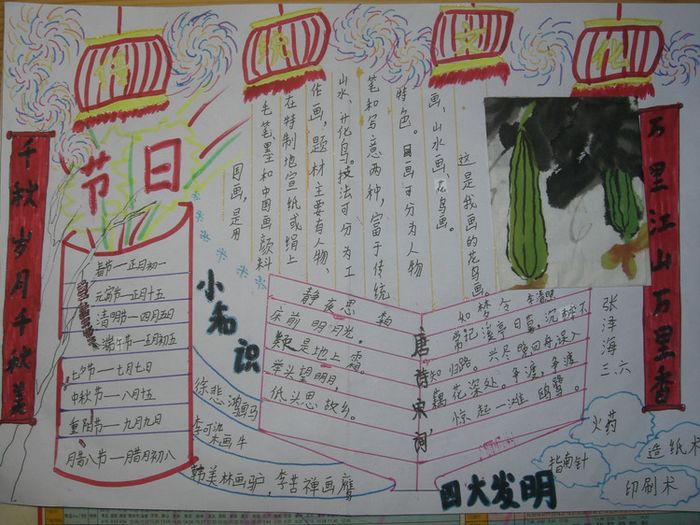 传统文化
千秋岁月千秋美
节日
春节—正月初一
元宵节—正月十五
清明节—四月五日
端午节—五月初五
七夕节—七月七日
中秋节—八月十五
重阳节—九月九日
腊八节—腊月初八
小知识
国画,是用
毛笔墨和中国画颜料
在特制地宣纸或绢上
作画,题材主要有人物、
山水、花鸟。技法可分为工
笔和写意两种,富于传统
特色。国画可分为人物
画、山水画、花鸟画。
这是我画的花鸟画
静夜思
床前明月光。
疑是地上霜。
举头望明月,
低头思故乡。
唐诗宋词
如梦令 李清照
常记溪亭日暮,沉醉不
知归路。兴尽晚回舟,误入
藕花深处。争渡,争渡
惊起一滩鸥鹭。
徐悲鸿画马
李可染画牛
韩美林画驴,李苦禅画鹰
张泽海
三.六
万里江山万里香
四大发明
火药
指南针
造纸术
印刷术